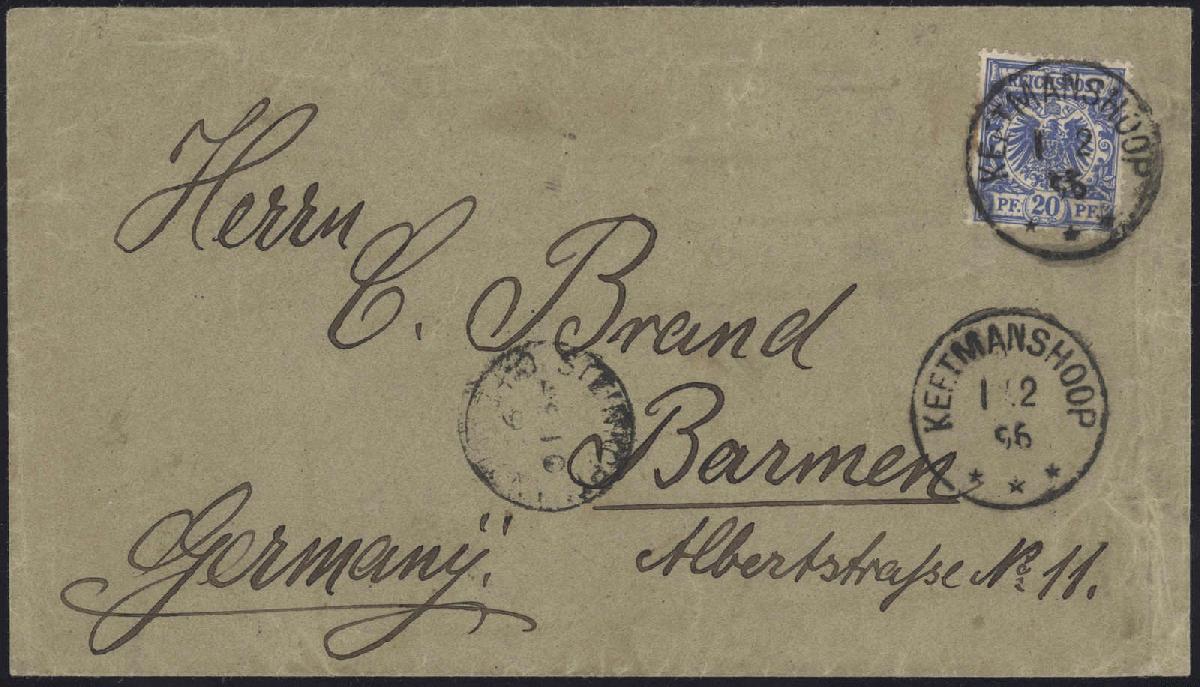 REICHSPOST
PF. 20 PF.
KEETMANSHOOP
1 2
96
Herrn
C. Brand
Barmen
Albertstraße № 11.
Germany.
KEETMANSHOOP
1 2
96